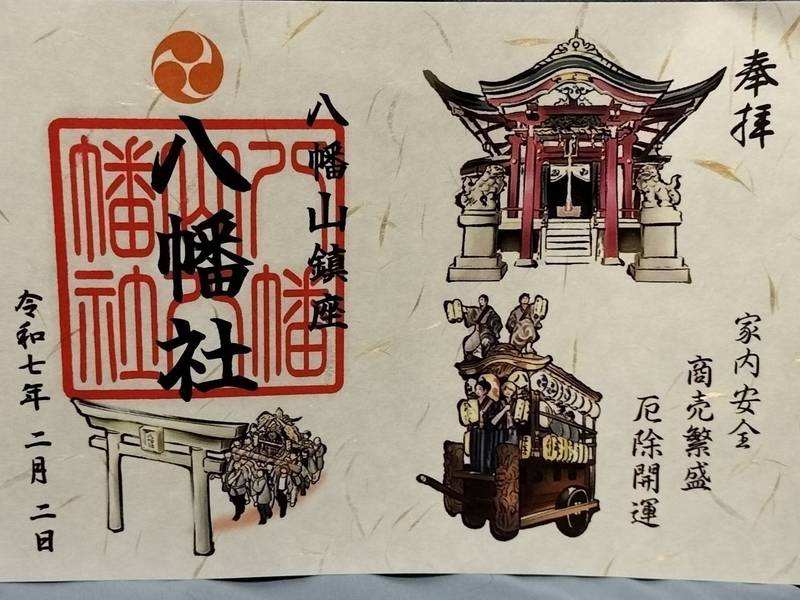 奉拝
家内安全
商売繁盛
厄除開運
八幡山鎮座
八幡社
八幡
幡社
令和七年 二月 二日